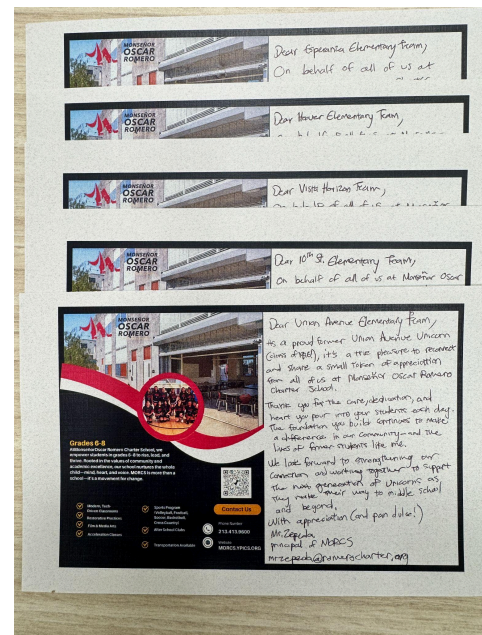 MONSEÑOR
OSCAR
ROMERO
Dear Esperanza Elementary Team,
On behalf of all of us at
MONSEÑOR
OSCAR
ROMERO
Dear Hoover Elementary Team,
MONSEÑOR
OSCAR
ROMERO
Dear Vista Horizon Team,
MONSEÑOR
OSCAR
ROMERO
Dear 10th St. Elementary Team,
On behalf of all of us at Monseñor Oscar
MONSEÑOR
OSCAR
ROMERO
Grades 6-8
At Monseñor Oscar Romero Charter School, we
empower students in grades 6-8 to rise, lead, and
thrive. Rooted in the values of community and
academic excellence, our school nurtures the whole
child—mind, heart, and voice. MORCS is more than a
school—it's a movement for change.
Modern, Tech-
Driven Classrooms
Restorative Practices
Film & Media Arts
Acceleration Classes
Sports Program
(Volleyball, Football,
Soccer, Basketball,
Cross Country)
After School Clubs
Transportation Available
Contact Us
Phone Number
213.413.9600
Website
MORCS.YPICS.ORG
Dear Union Avenue Elementary Team,
As a proud former Union Avenue Unicorn
(class of 1991), it's a true pleasure to reconnect
and share a small token of appreciation
from all of us at Monseñor Oscar Romero
Charter School.
Thank you for the care, dedication, and
heart you pour into your students each day.
The foundation you build continues to make
a difference in our community—and the
lives of former students like me.
We look forward to strengthening our
connection and working together to support
the next generation of Unicorns as
they make their way to middle school
and beyond.
With appreciation (and pan dulce!)
Mr. Zepeda
principal of MORCS
mrzepeda@romerocharter.org